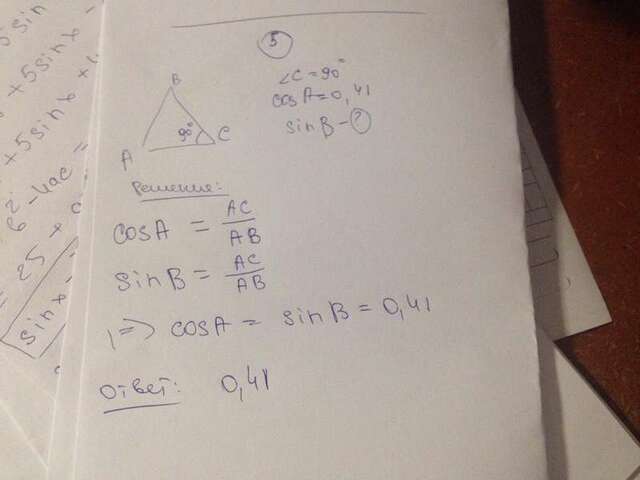 5
∠C = 90°
cosA = 0,41
sinB - ?
B
90°
A
C
Решение:
cosA = AC/AB
sinB = AC/AB
, => cosA = sinB = 0,41
Ответ: 0,41
5 sin
+ 5 sin x
+ 5 sin x
b² - 4ac =
25 +
sin x